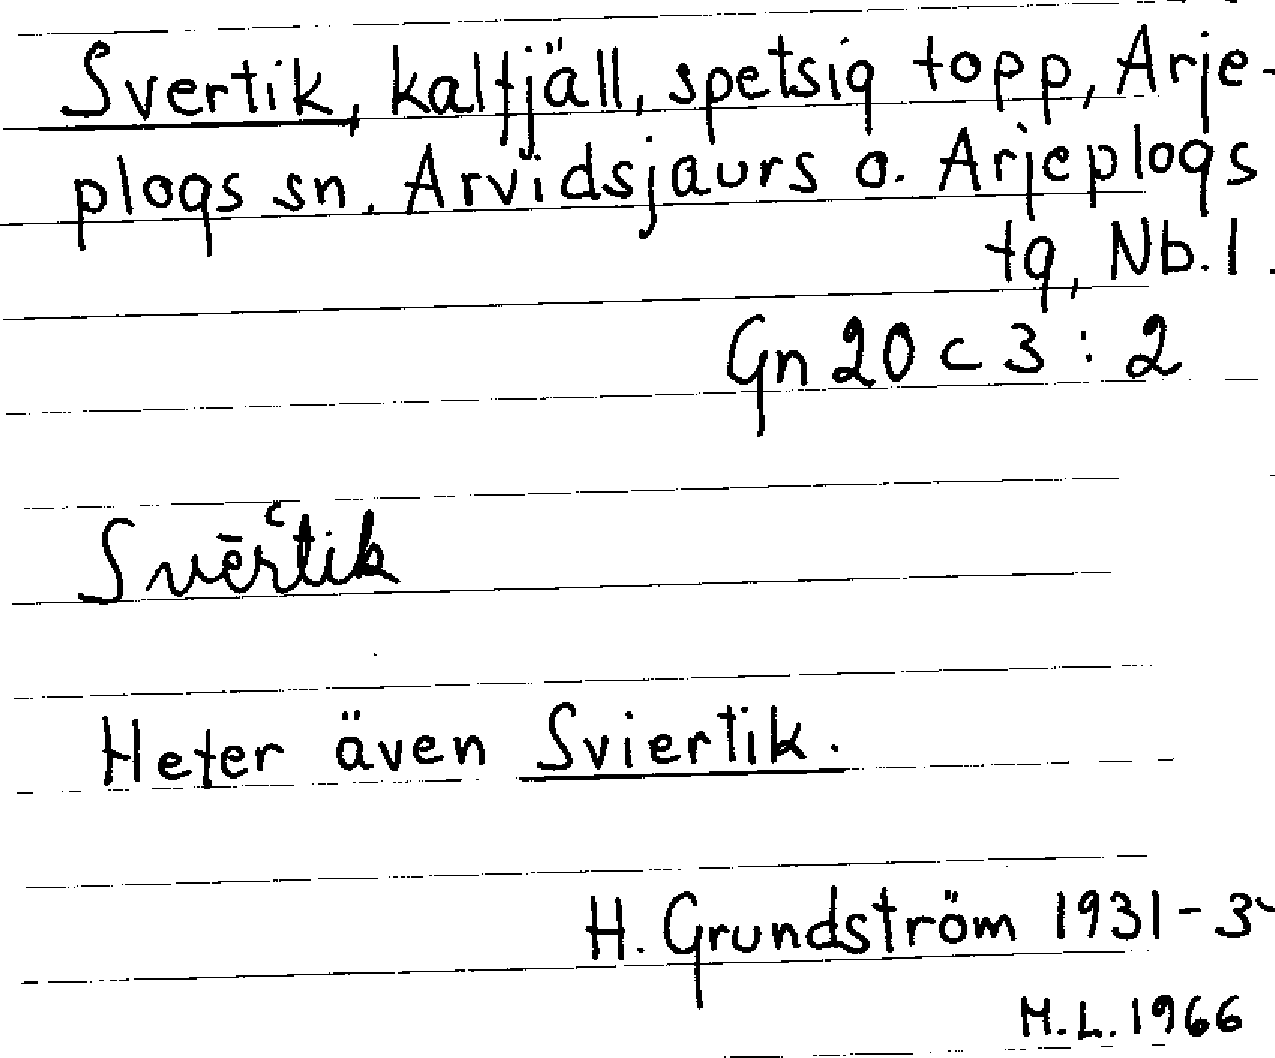 Svertik, kalfjäll, spetsig topp, Arje-
plogs sn. Arvidsjaurs o. Arjeplogs
tg, Nb. l.
Gn 20 c 3 : 2
Svērʿtik
Heter även Sviertik.
H. Grundström 1931-3
M.L. 1966